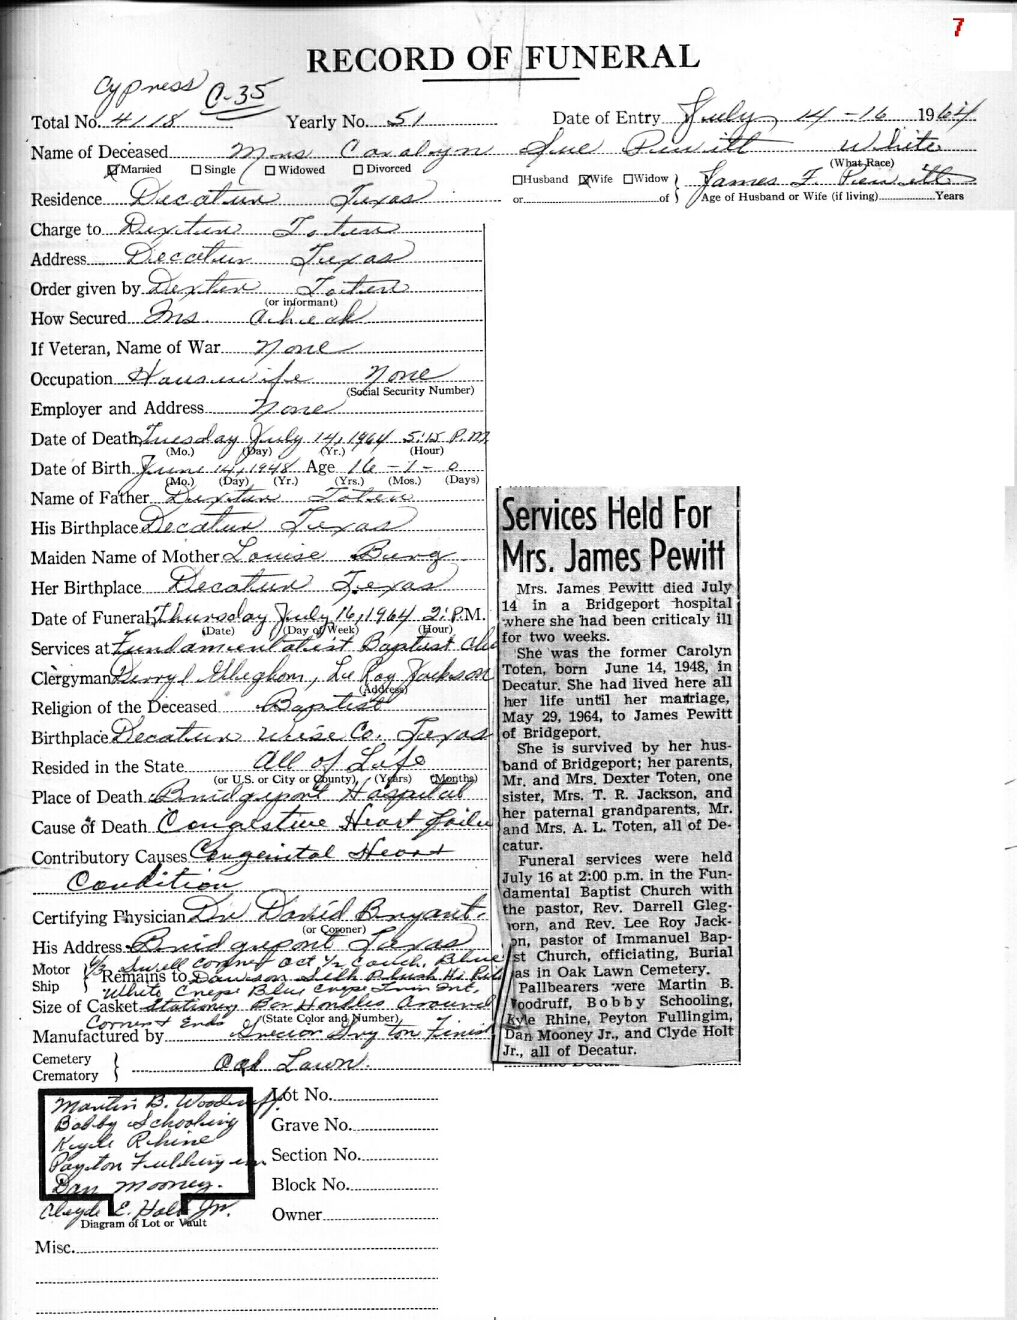 7
RECORD OF FUNERAL
Cypress C-35
Total No. 4118 Yearly No. 51 Date of Entry July 14-16 1964
Name of Deceased Mrs Carolyn Sue Pewitt White
(What Race)
Married Single Widowed Divorced Husband Wife Widow James F. Pewitt
Residence Decatur Texas or of Age of Husband or Wife (if living) Years
Charge to Dexter Toten
Address Decatur Texas
Order given by Dexter Toten
(or informant)
How Secured Ms.
If Veteran, Name of War None
Occupation Housewife None
(Social Security Number)
Employer and Address None
Date of Death Tuesday July 14, 1964 5:15 P.M
(Mo.) (Day) (Yr.) (Hour)
Date of Birth June 14, 1948 Age 16-1-0
(Mo.) (Day) (Yr.) (Yrs.) (Mos.) (Days)
Name of Father Dexter Toten
His Birthplace Decatur Texas
Maiden Name of Mother Louise Burg
Her Birthplace Decatur Texas
Date of Funeral Thursday July 16, 1964 2: P.M.
(Date) (Day of Week) (Hour)
Services at Fundamentalist Baptist
Clergyman Lee Roy Jackson
(Address)
Religion of the Deceased Baptist
Birthplace Decatur Wise Co. Texas
Resided in the State All of Life
(or U.S. or City or County) (Years) (Months)
Place of Death Bridgeport Hospital
Cause of Death Congestive Heart
Contributory Causes Congenital Heart
Condition
Certifying Physician Dr David Bryant
(or Coroner)
His Address Bridgeport Texas
Motor Ship Remains to
6/3 Swell Corner Oct 1/2 Couch, Blue
Dawson Silk Plush
White Crepe Blue Crepe Trim Int.
Size of Casket Stationery Bar Handles Around
Corner & Ends (State Color and Number)
Manufactured by Finish
Cemetery
Crematory
Oak Lawn.
Martin B. Woodruff Lot No.
Bobby Schooling
Kyle Rhine Grave No.
Payton Section No.
Dan Mooney. Block No.
Clyde E. Holt Jr. Owner
Diagram of Lot or Vault
Misc.
Services Held For
Mrs. James Pewitt
Mrs. James Pewitt died July
14 in a Bridgeport hospital
where she had been criticaly ill
for two weeks.
She was the former Carolyn
Toten, born June 14, 1948, in
Decatur. She had lived here all
her life until her marriage,
May 29, 1964, to James Pewitt
of Bridgeport.
She is survived by her hus-
band of Bridgeport; her parents,
Mr. and Mrs. Dexter Toten, one
sister, Mrs. T. R. Jackson, and
her paternal grandparents, Mr.
and Mrs. A. L. Toten, all of De-
catur.
Funeral services were held
July 16 at 2:00 p.m. in the Fun-
damental Baptist Church with
the pastor, Rev. Darrell Gleg-
horn, and Rev. Lee Roy Jack-
on, pastor of Immanuel Bap-
st Church, officiating, Burial
as in Oak Lawn Cemetery.
Pallbearers were Martin B.
Woodruff, Bobby Schooling,
Kyle Rhine, Peyton Fullingim,
Dan Mooney Jr., and Clyde Holt
Jr., all of Decatur.